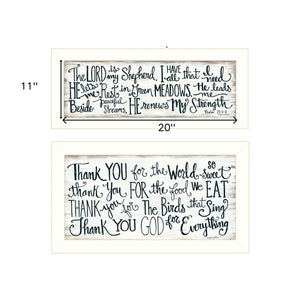 11''
The LORD is my Shepherd, I have all that I need
He lets me Rest in Green MEADOWS. He leads me
Beside peaceful streams. HE renews My Strength
Psalm 23:1-3
20''
Thank YOU for the World so sweet
thank you FOR the food we EAT
THANK you for The Birds that Sing
Thank YOU GOD for Everything